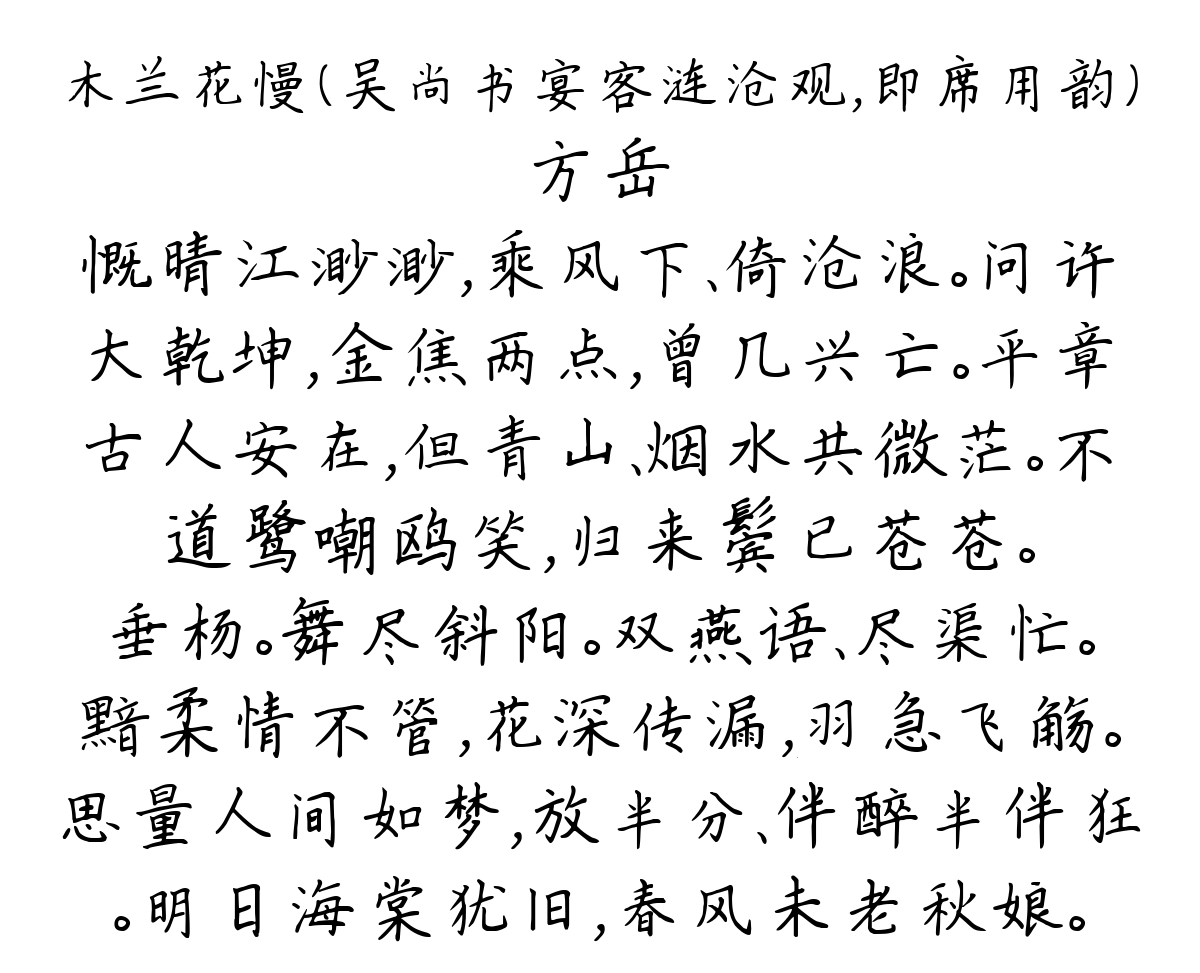 木兰花慢(吴尚书宴客涟沧观,即席用韵)
方岳
慨晴江渺渺,乘风下、倚沧浪。问许
大乾坤,金焦两点,曾几兴亡。平章
古人安在,但青山、烟水共微茫。不
道鹭嘲鸥笑,归来鬓已苍苍。
垂杨。舞尽斜阳。双燕语、尽渠忙。
黯柔情不管,花深传漏,羽急飞觞。
思量人间如梦,放半分、伴醉半伴狂
。明日海棠犹旧,春风未老秋娘。